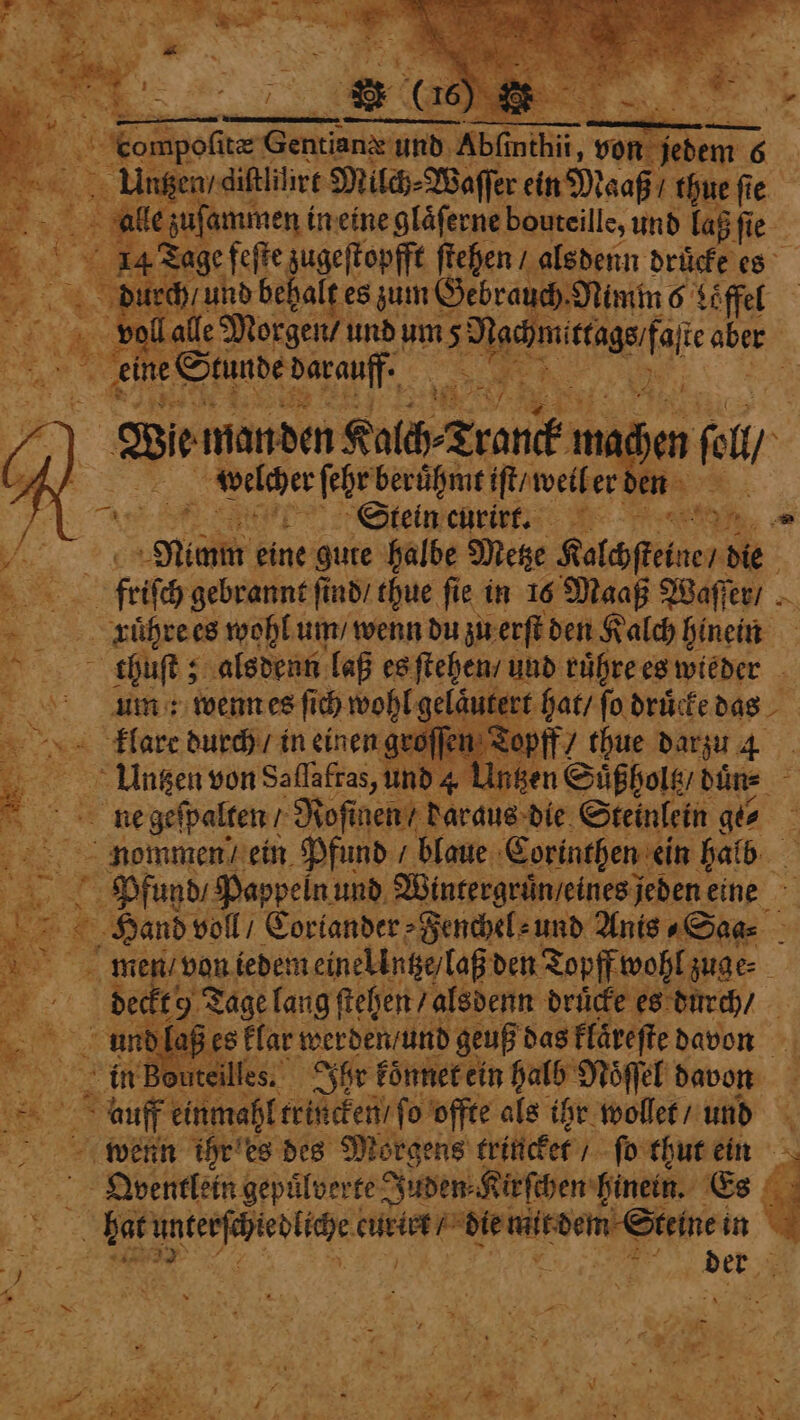 (16)
compoſitæ Gentianæ und Abſinthii, von jedem 6
Untzen/ diſtlilirt Milch-Waſſer ein Maaß / thue ſie
alle zuſammen in eine glaͤſerne bouteille, und laß ſie
14 Tage feſte zugeſtopfft ſtehen / alsdenn druͤcke es
durch/ und behalt es zum Gebrauch. Nimm 6 Loͤffel
voll alle Morgen/ und um 5 Nachmittags/ faſte aber
eine Stunde darauff.
Wie man den Kalch-Tranck machen ſoll/
welcher ſehr beruͤhmt iſt/ weil er den
Stein curirt.
Nimm eine gute halbe Metze Kalchſteine / die
friſch gebrannt ſind/ thue ſie in 16 Maaß Waſſer/
ruͤhre es wohl um/ wenn du zu erſt den Kalch hinein
thuſt ; alsdenn laß es ſtehen/ und ruͤhre es wieder
um : wenn es ſich wohl gelaͤutert hat/ ſo druͤcke das
klare durch / in einen groſſen Topff / thue darzu 4
Untzen von Saſſafras, und 4 Untzen Suͤßholtz/ duͤn-
ne geſpalten / Roſinen / daraus die Steinlein ge-
nommen / ein Pfund / blaue Corinthen ein halb
Pfund/ Pappeln und Wintergruͤn/ eines jeden eine
Hand voll / Coriander-Fenchel- und Anis-Saa-
men/ von iedem eine Untze/ laß den Topff wohl zuge-
deckt 9 Tage lang ſtehen / alsdenn druͤcke es durch/
und laß es klar werden/ und geuß das klaͤreſte davon
in Bouteilles. Ihr koͤnnet ein halb Noͤſſel davon
auff einmahl trincken/ ſo offte als ihr wollet / und
wenn ihr es des Morgens trincket / ſo thut ein
Qventlein gepuͤlverte Juden-Kirſchen hinein. Es
hat unterſchiedliche curirt / die mit dem Steine in
der